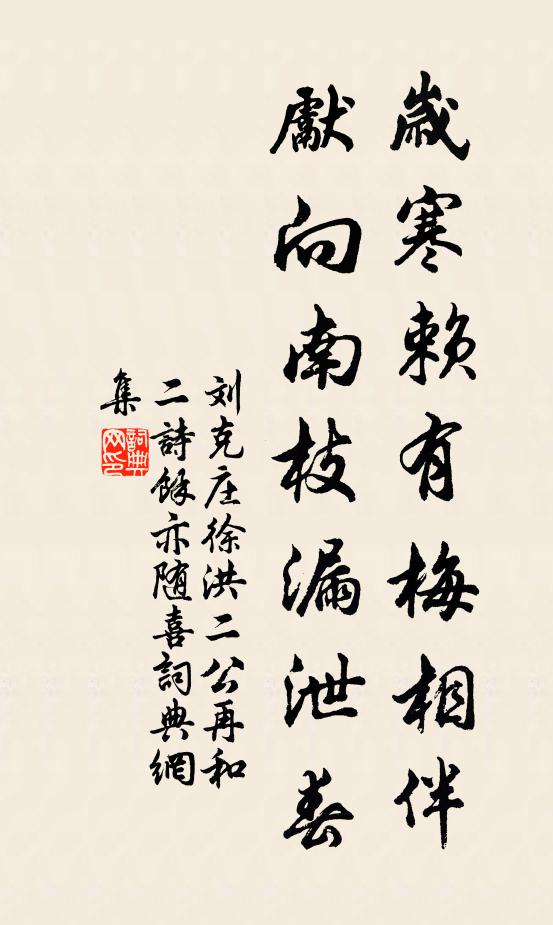 歲寒賴有梅相伴
獻向南枝漏泄春
刘克庄徐洪二公再和
二詩餘亦随喜詞典網
集
詞典
网印